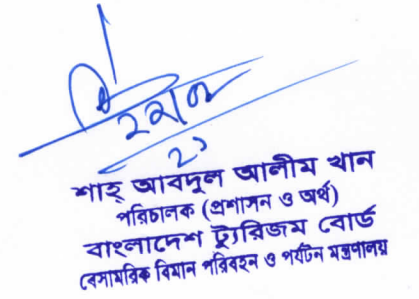 শাহ্ আবদুল আলীম খান
পরিচালক (প্রশাসন ও অর্থ)
বাংলাদেশ ট্যুরিজম বোর্ড
বেসামরিক বিমান পরিবহন ও পর্যটন মন্ত্রণালয়